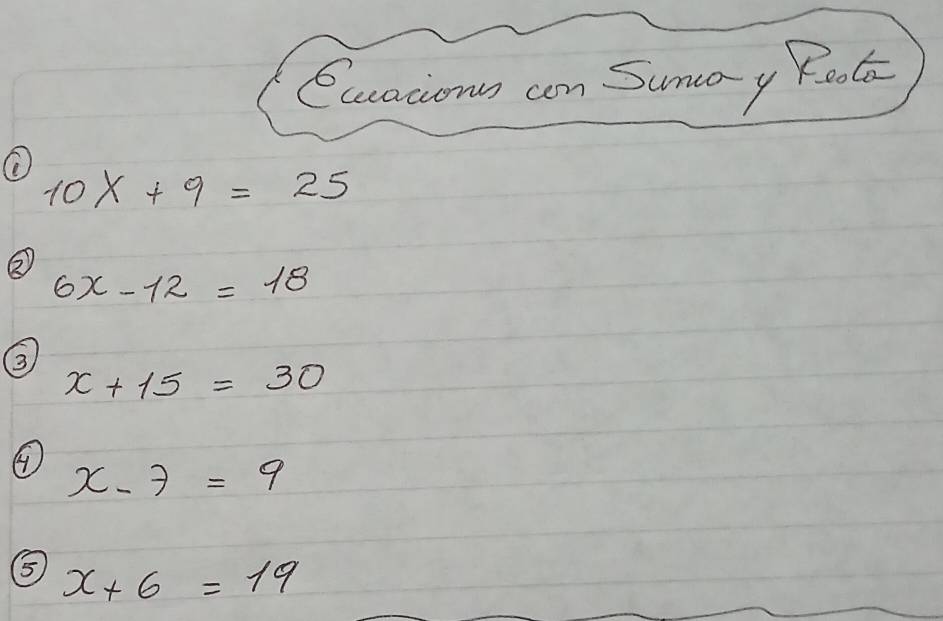 Ecuaciones con Suma y Resta
① 10X + 9 = 25
② 6x - 12 = 18
③ x + 15 = 30
④ x - 7 = 9
⑤ x + 6 = 19